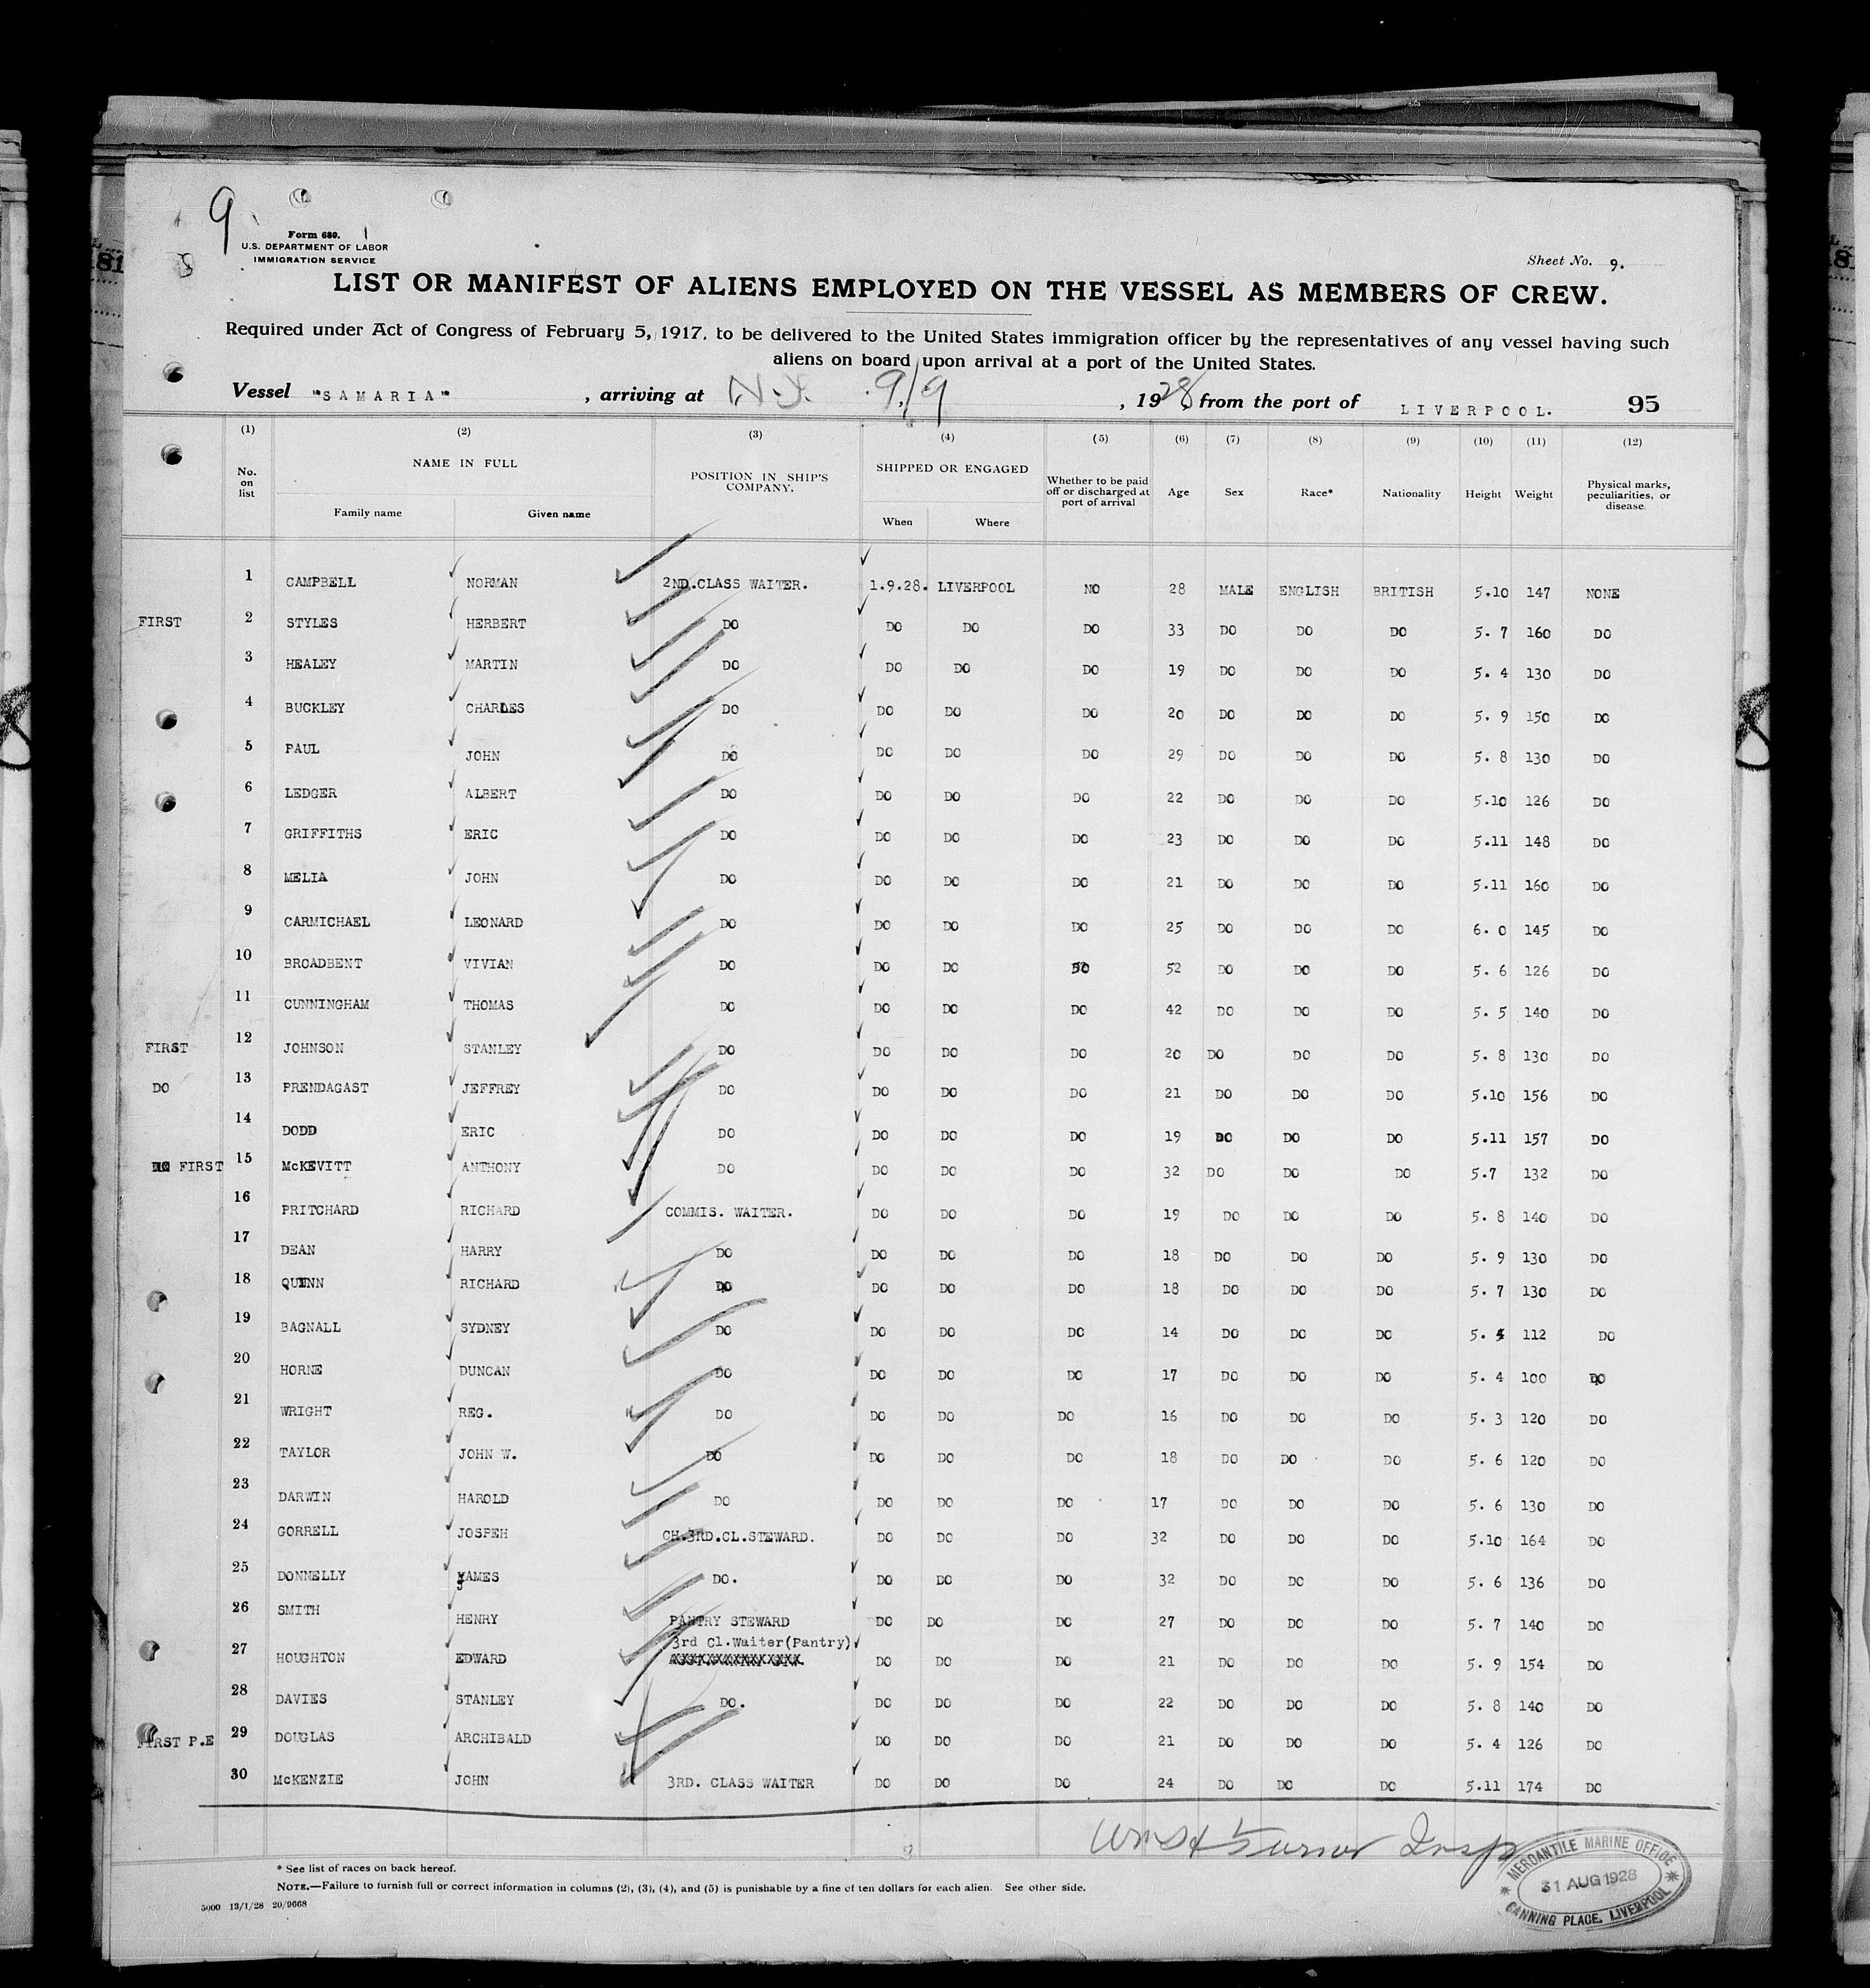 9
Form 680.
U.S. DEPARTMENT OF LABOR
IMMIGRATION SERVICE
Sheet No. 9.
LIST OR MANIFEST OF ALIENS EMPLOYED ON THE VESSEL AS MEMBERS OF CREW.
Required under Act of Congress of February 5, 1917, to be delivered to the United States immigration officer by the representatives of any vessel having such
aliens on board upon arrival at a port of the United States.
Vessel "SAMARIA", arriving at N.Y. 9/9, 1928, from the port of LIVERPOOL. 95
(1) (2) (3) (4) (5) (6) (7) (8) (9) (10) (11) (12)
No. on list NAME IN FULL Family name Given name POSITION IN SHIP'S COMPANY. SHIPPED OR ENGAGED When Where Whether to be paid off or discharged at port of arrival Age Sex Race* Nationality Height Weight Physical marks, peculiarities, or disease.
1 CAMPBELL NORMAN 2ND.CLASS WAITER. 1.9.28. LIVERPOOL NO 28 MALE ENGLISH BRITISH 5.10 147 NONE
FIRST 2 STYLES HERBERT DO DO DO DO 33 DO DO DO 5. 7 160 DO
3 HEALEY MARTIN DO DO DO DO 19 DO DO DO 5. 4 130 DO
4 BUCKLEY CHARLES DO DO DO DO 20 DO DO DO 5. 9 150 DO
5 PAUL JOHN DO DO DO DO 29 DO DO DO 5. 8 130 DO
6 LEDGER ALBERT DO DO DO DO 22 DO DO DO 5.10 126 DO
7 GRIFFITHS ERIC DO DO DO DO 23 DO DO DO 5.11 148 DO
8 MELIA JOHN DO DO DO DO 21 DO DO DO 5.11 160 DO
9 CARMICHAEL LEONARD DO DO DO DO 25 DO DO DO 6. 0 145 DO
10 BROADBENT VIVIAN DO DO DO DO 52 DO DO DO 5. 6 126 DO
11 CUNNINGHAM THOMAS DO DO DO DO 42 DO DO DO 5. 5 140 DO
FIRST 12 JOHNSON STANLEY DO DO DO DO 20 DO DO DO 5. 8 130 DO
DO 13 PRENDAGAST JEFFREY DO DO DO DO 21 DO DO DO 5.10 156 DO
14 DODD ERIC DO DO DO DO 19 DO DO DO 5.11 157 DO
FIRST 15 McKEVITT ANTHONY DO DO DO DO 32 DO DO DO 5.7 132 DO
16 PRITCHARD RICHARD COMMIS. WAITER. DO DO DO 19 DO DO DO 5. 8 140 DO
17 DEAN HARRY DO DO DO DO 18 DO DO DO 5. 9 130 DO
18 QUINN RICHARD DO DO DO DO 18 DO DO DO 5. 7 130 DO
19 BAGNALL SYDNEY DO DO DO DO 14 DO DO DO 5. 112 DO
20 HORNE DUNCAN DO DO DO DO 17 DO DO DO 5. 4 100 DO
21 WRIGHT REG. DO DO DO DO 16 DO DO DO 5. 3 120 DO
22 TAYLOR JOHN W. DO DO DO DO 18 DO DO DO 5. 6 120 DO
23 DARWIN HAROLD DO DO DO DO 17 DO DO DO 5. 6 130 DO
24 GORRELL JOSPEH CH.3RD.CL.STEWARD. DO DO DO 32 DO DO DO 5.10 164 DO
25 DONNELLY JAMES DO. DO DO DO 32 DO DO DO 5. 6 136 DO
26 SMITH HENRY PANTRY STEWARD DO DO DO 27 DO DO DO 5. 7 140 DO
3rd Cl.Waiter(Pantry)
27 HOUGHTON EDWARD XXXXXXXXXXXXXXXX DO DO DO 21 DO DO DO 5. 9 154 DO
28 DAVIES STANLEY DO. DO DO DO 22 DO DO DO 5. 8 140 DO
FIRST P.E 29 DOUGLAS ARCHIBALD DO DO DO 21 DO DO DO 5. 4 126 DO
30 McKENZIE JOHN 3RD. CLASS WAITER DO DO DO 24 DO DO DO 5.11 174 DO
Turner Insp
MERCANTILE MARINE OFFICE
31 AUG 1928
CANNING PLACE, LIVERPOOL
* See list of races on back hereof.
NOTE.—Failure to furnish full or correct information in columns (2), (3), (4), and (5) is punishable by a fine of ten dollars for each alien. See other side.
5000 13/1/28 20/9668